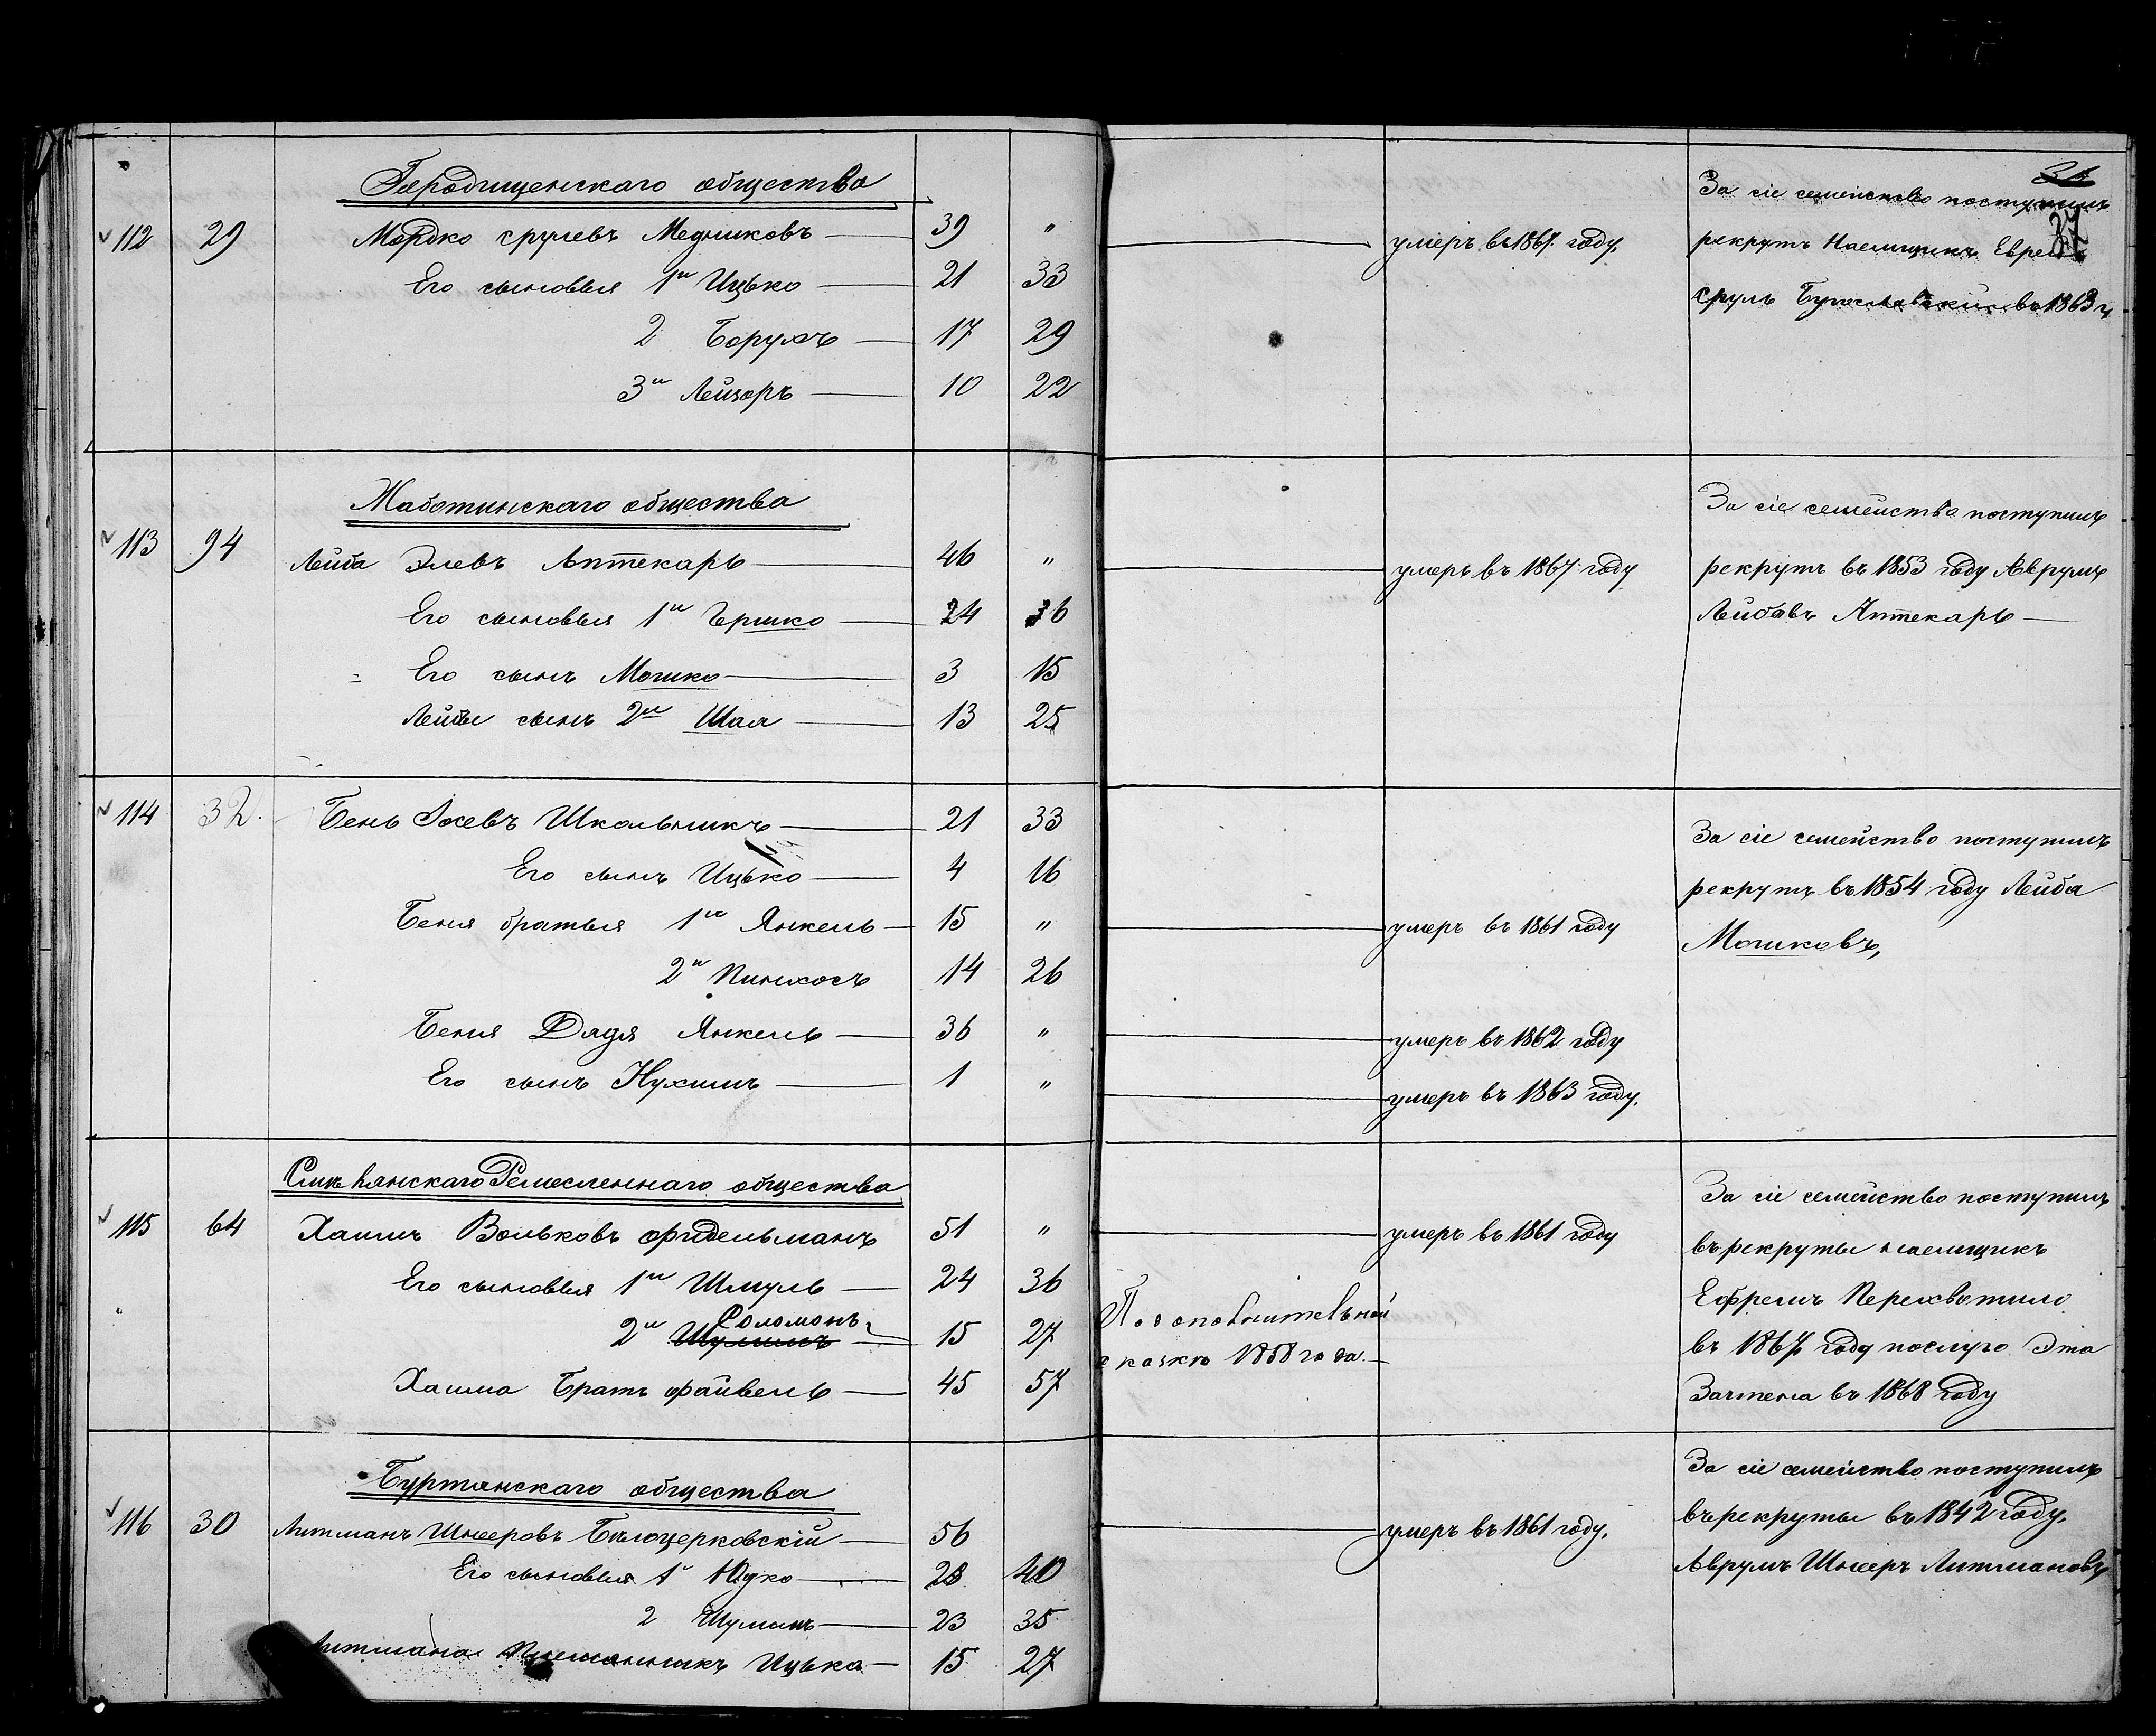 Городищенскаго общества
За сіе семейство поступилъ
37
112 29 Мордко срулевъ Медниковъ 39 " умеръ въ 1867 году, рекрутъ Наемщикъ Еврей
Его сыновья 1й Ицько 21 33
сруль въ 1863 г.
2 Борухъ 17 29
3й Лейзоръ 10 22
Жаботинскаго общества
За сіе семейство поступилъ
113 94 Лейба Элевъ Аптекарь 46 " умеръ въ 1867 году рекрутъ въ 1853 году Аврумъ
Его сыновья 1й Гершко 24 36 Лейбовъ Аптекарь
Его сынъ Мошко 3 15
Лейбы сынъ 2й Шая 13 25
114 32. Бень Іосевъ Школьникъ 21 33 За сіе семейство поступилъ
Его сынъ Ицько 4 16 рекрутъ въ 1854 году Лейба
Беня братья 1й Янкель 15 " умеръ въ 1861 году Мошковъ,
2й Пинхосъ 14 26
Беня Дядя Янкель 36 " умеръ въ 1862 году
Его сынъ Нухимъ 1 " умеръ въ 1863 году.
Смѣлянскаго Ремесленнаго общества
За сіе семейство поступилъ
115 64 Хаимъ Вольковъ фридельманъ 51 " умеръ въ 1861 году въ рекруты наемщикъ
Его сыновья 1й Шмуль 24 36 Ефремъ Перехватило
Соломонъ
2й Шулимъ 15 27 По дополнительной сказкѣ 1858 года. въ 1867 году Эта
Хаима Братъ файвель 45 57 Зачтена въ 1868 году
Буртянскаго общества
За сіе семейство поступилъ
116 30 Литманъ Шнееровъ Бѣлоцерковскій 56 умеръ въ 1861 году, въ рекруты въ 1842 году,
Его сыновья 1й Юдко 28 40 Аврумъ Шнееръ Литмановъ
2 Шулимъ 23 35
Литмана Племянникъ Ицька 15 27